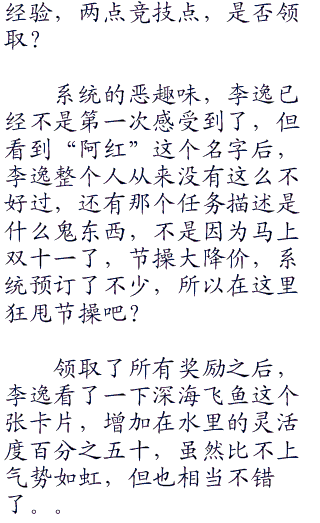 经验，两点竞技点，是否领
取？
系统的恶趣味，李逸已
经不是第一次感受到了，但
看到“阿红”这个名字后，
李逸整个人从来没有这么不
好过，还有那个任务描述是
什么鬼东西，不是因为马上
双十一了，节操大降价，系
统预订了不少，所以在这里
狂甩节操吧？
领取了所有奖励之后，
李逸看了一下深海飞鱼这个
张卡片，增加在水里的灵活
度百分之五十，虽然比不上
气势如虹，但也相当不错
了。。